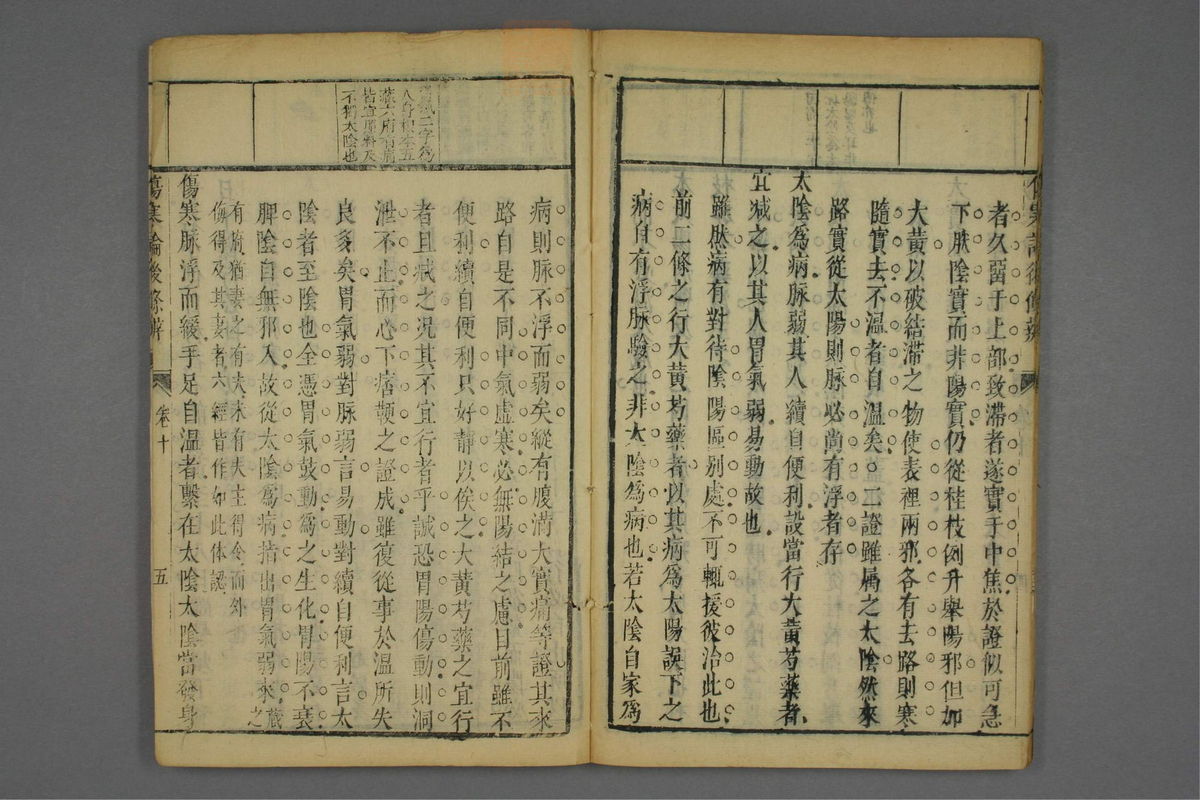 者久留于上部致滯者遂實于中焦於證似可急
下肰陰實而非陽實仍從桂枝例升舉陽邪但加
大黃以破結滯之物使表裡兩邪各有去路則寒
隨實去不溫者自溫矣二證雖属之太陰然來
路實從太陽則脉必尚有浮者存
太陰爲病脉弱其人續自便利設當行大黃芍藥者
宜減之以其人胃氣弱易動故也
雖肰病有對待陰陽區别處不可輒援彼治此也
前二條之行大黃芍藥者以其病爲太陽誤下之
病自有浮脉驗之非太陰爲病也若太陰自家爲
病則脉不浮而弱矣縱有腹滿大實痛等證其來
路自是不同中氣虛寒必無陽結之慮目前雖不
便利續自便利只好靜以俟之大黃芍藥之宜行
者且減之况其不宜行者乎誠恐胃陽傷動則洞
泄不止而心下痞鞕之證成雖復從事於温所失
良多矣胃氣弱對脉弱言易動對續自便利言太
陰者至陰也全憑胃氣鼓動爲之生化胃陽不衰
脾陰自無邪入故從太陰爲病指出胃氣弱來
藏之
有腑猶妻之有夫未有夫主得令而外
侮得及其妻者六經皆作如此体認
傷寒脉浮而緩手足自温者繫在太陰太陰當發身
二字爲
人身根本五
藏六府有病
皆宜照料及
不獨太陰也
傷寒論後條辨
卷十
五